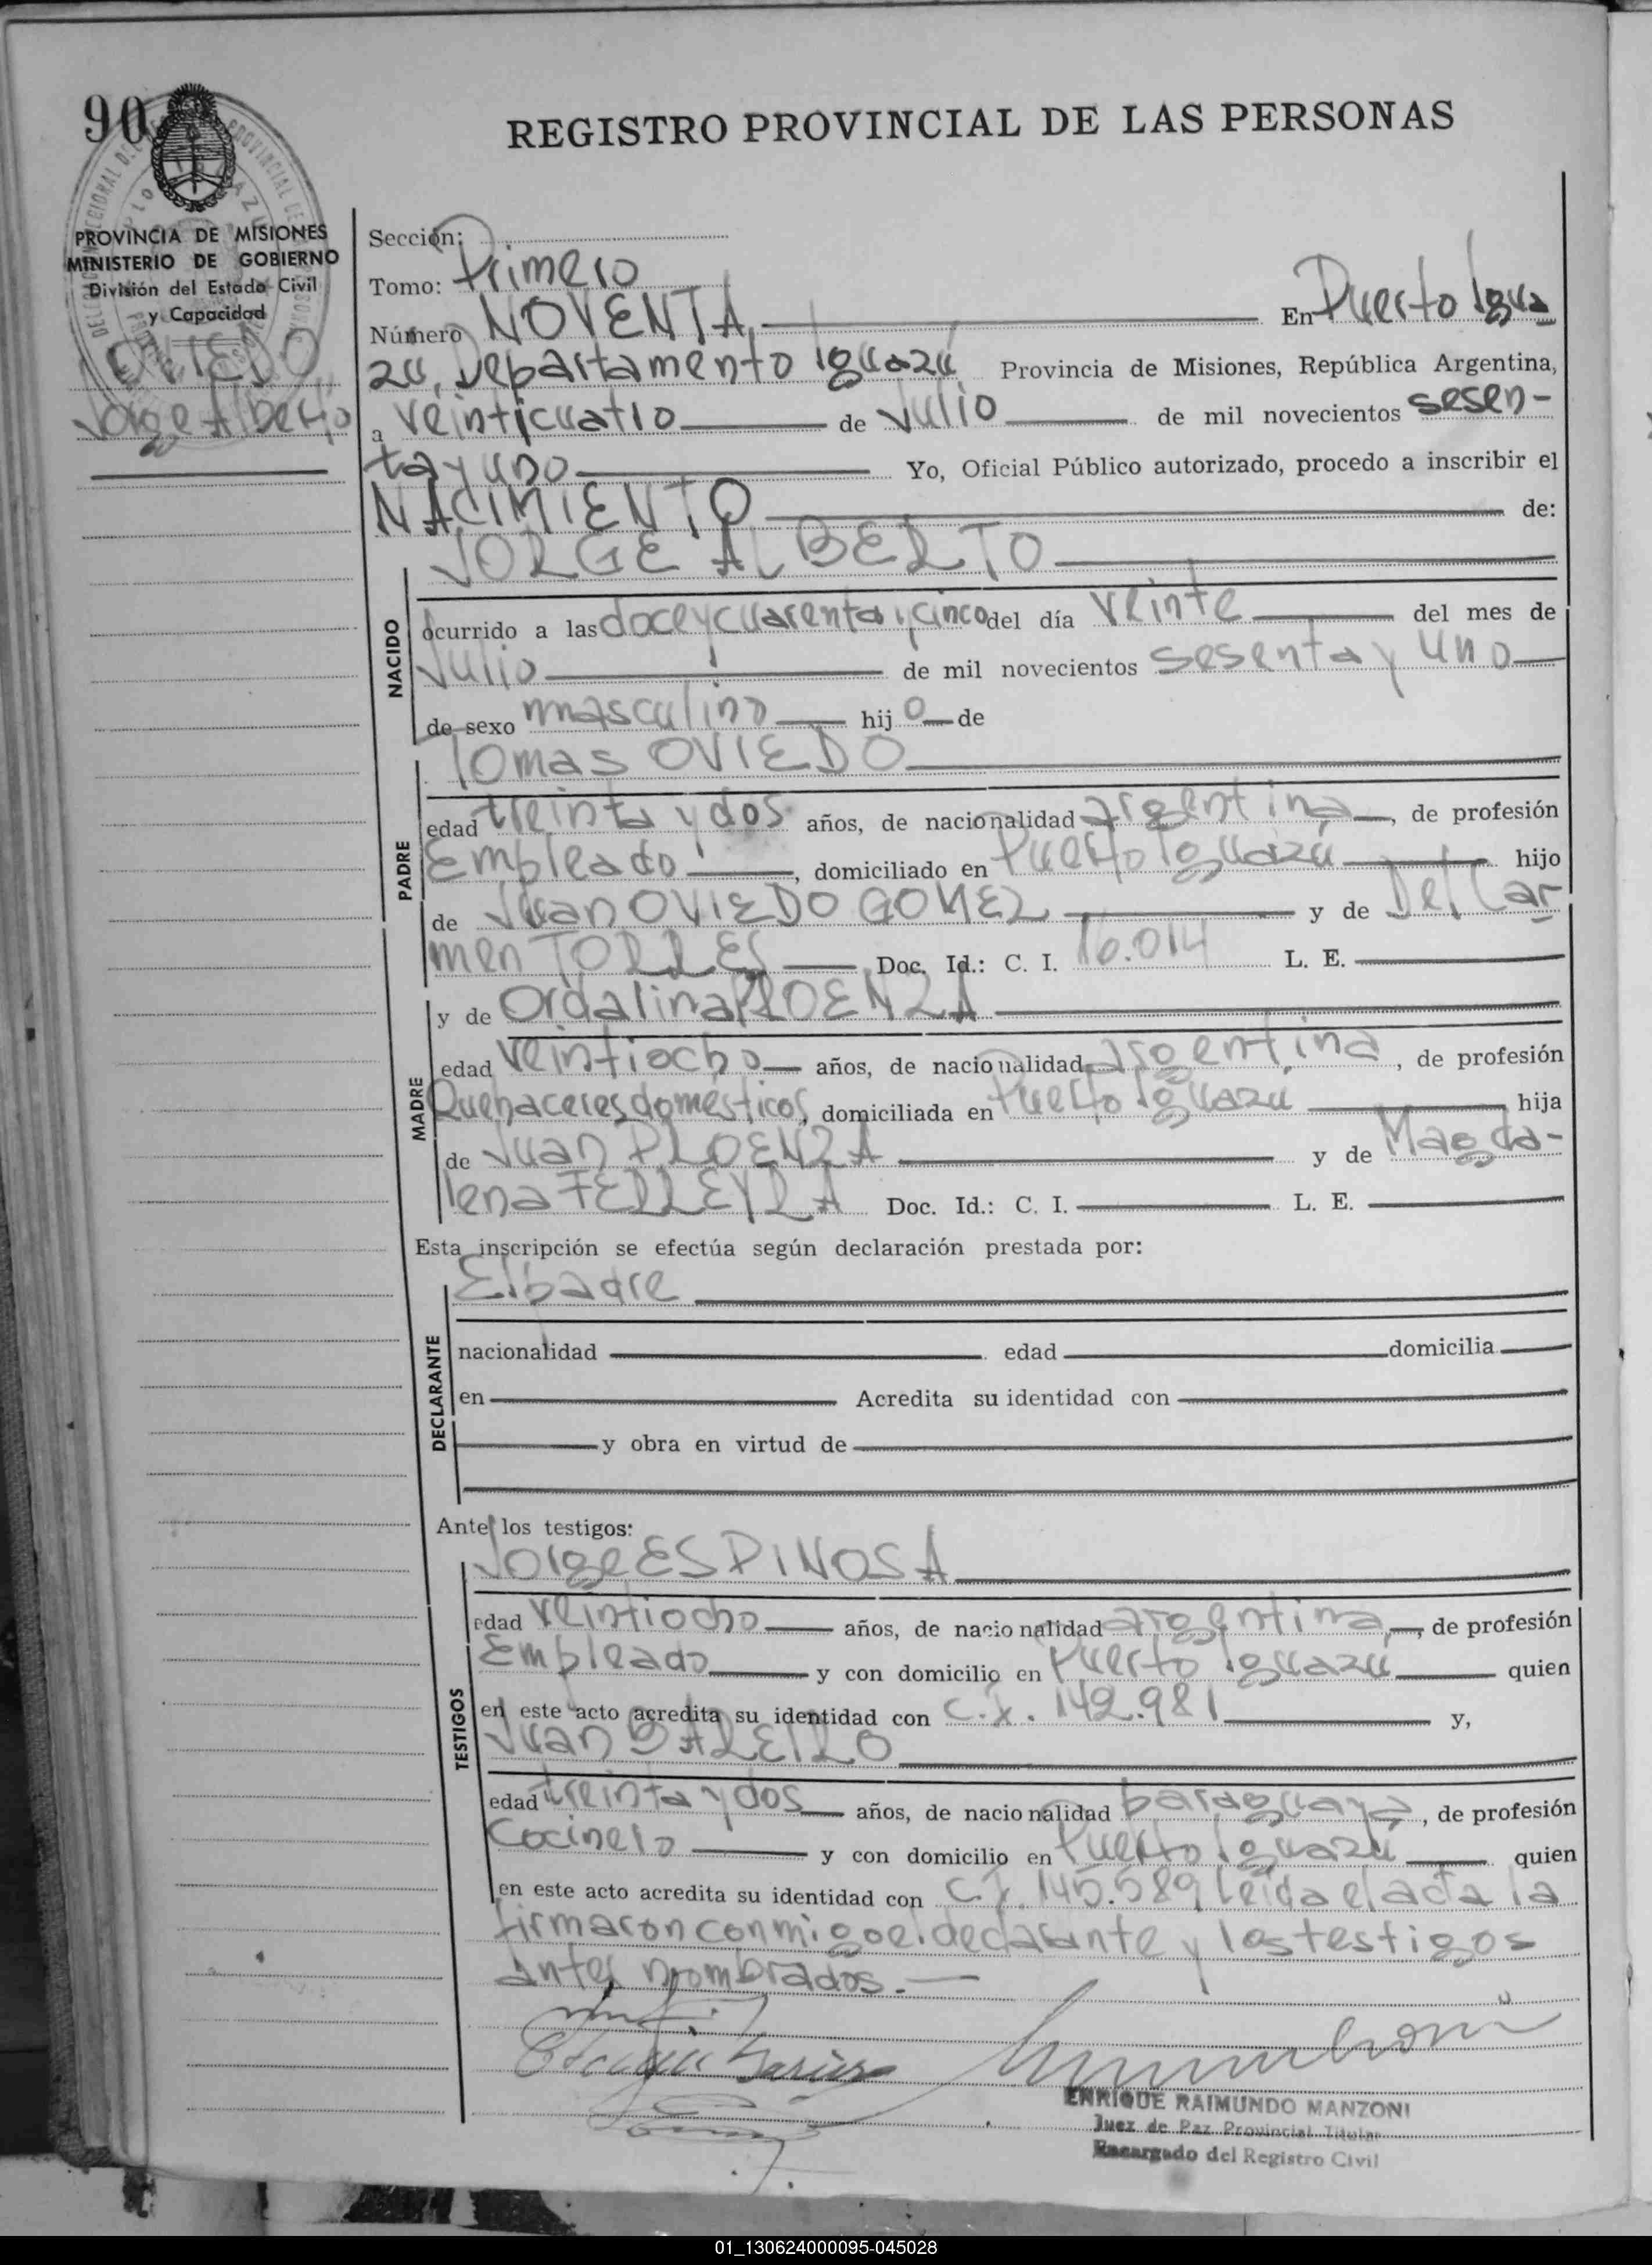 90
REGISTRO PROVINCIAL DE LAS PERSONAS
PROVINCIA DE MISIONES
MINISTERIO DE GOBIERNO
División del Estado Civil
y Capacidad
OVIEDO
Jorge Alberto
Sección:
Tomo: Primero
Número NOVENTA, En Puerto Igua
zú, Departamento Iguazú Provincia de Misiones, República Argentina,
a veinticuatro de Julio de mil novecientos sesen-
ta y uno Yo, Oficial Público autorizado, procedo a inscribir el
NACIMIENTO de:
JORGE ALBERTO
NACIDO
ocurrido a las doce y cuarenta y cinco del día veinte del mes de
Julio de mil novecientos sesenta y uno
de sexo masculino hijo de
Tomas OVIEDO
PADRE
edad treinta y dos años, de nacionalidad argentina, de profesión
Empleado, domiciliado en Puerto Iguazú hijo
de Juan OVIEDO GOMEZ y de Del Car
men TORRES Doc. Id.: C. I. 16.014 L. E.
y de Ordalina PLOENZA
MADRE
edad veintiocho años, de nacionalidad argentina, de profesión
Quehaceres domésticos, domiciliada en Puerto Iguazú hija
de Juan PLOENZA y de Magda-
lena FERREYRA Doc. Id.: C. I. L. E.
Esta inscripción se efectúa según declaración prestada por:
El badre
DECLARANTE
nacionalidad edad domicilia
en Acredita su identidad con
y obra en virtud de
Ante los testigos:
Jorge ESPINOSA
TESTIGOS
edad veintiocho años, de nacionalidad argentina, de profesión
Empleado y con domicilio en Puerto Iguazú quien
en este acto acredita su identidad con C.I. 142.981 y,
Juan BAREIRO
edad treinta y dos años, de nacionalidad baraguaya, de profesión
Cocinero y con domicilio en Puerto Iguazú quien
en este acto acredita su identidad con C.I. 145.589 Leída el acta la
firmaron conmigo el declarante y los testigos
antes nombrados.-
ENRIQUE RAIMUNDO MANZONI
Juez de Paz Provincial Titular
Encargado del Registro Civil
01_130624000095-045028